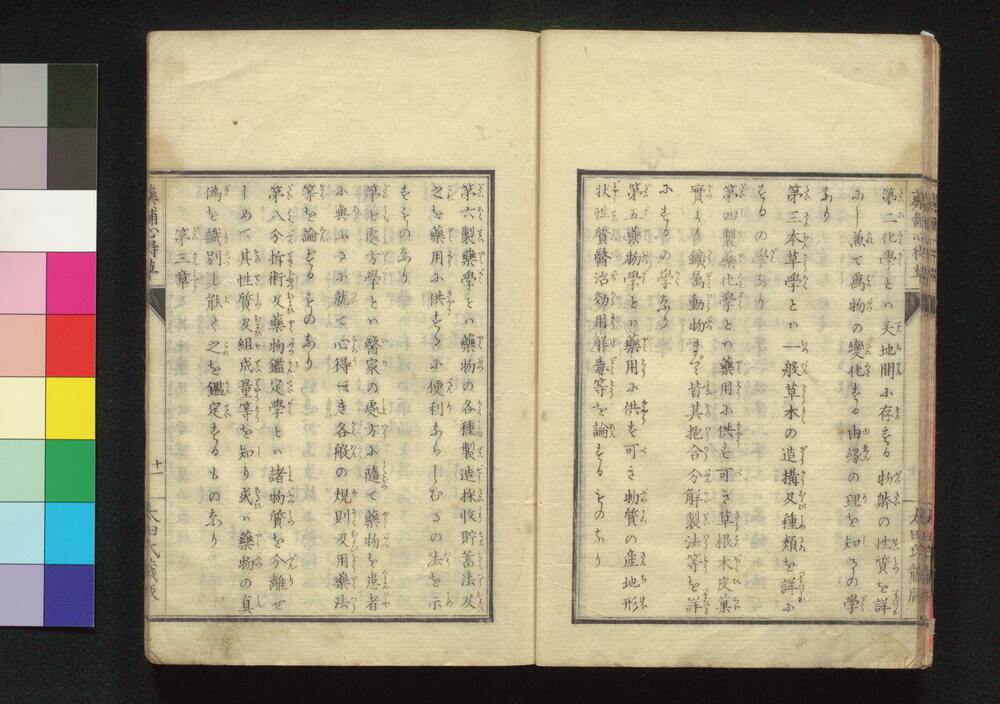 第二化學とハ天地間に存する物躰の性質を詳
にし兼て萬物の變化する由縁の理を知るの學
なり
第三本草學とハ一般草木の造構及種類を詳に
するの學なり
第四製藥化學とハ藥用に供す可き草根木皮菓
實より鑛属動物まで皆其抱合分解製法等を詳
にするの學なり
第五藥物學とハ藥用に供す可き物質の産地形
状性質醫治効用解毒等を論するものなり
第六製藥學とハ藥物の各種製造採收貯蓄法及
之を藥用に供するに便利ならしむるの法を示
すものなり
第七處方學とハ醫家の處方に隨て藥物を患者
に與ふるに就て心得べき各般の規則及用藥法
等を論するものなり
第八分拆術及藥物鑑定學とハ諸物質を分離せ
しめて其性質及組成量等を知り或ハ藥物の真
偽を識別し能く之を鑑定するものなり
第三章
藥舗心得草
十一
太田氏藏版